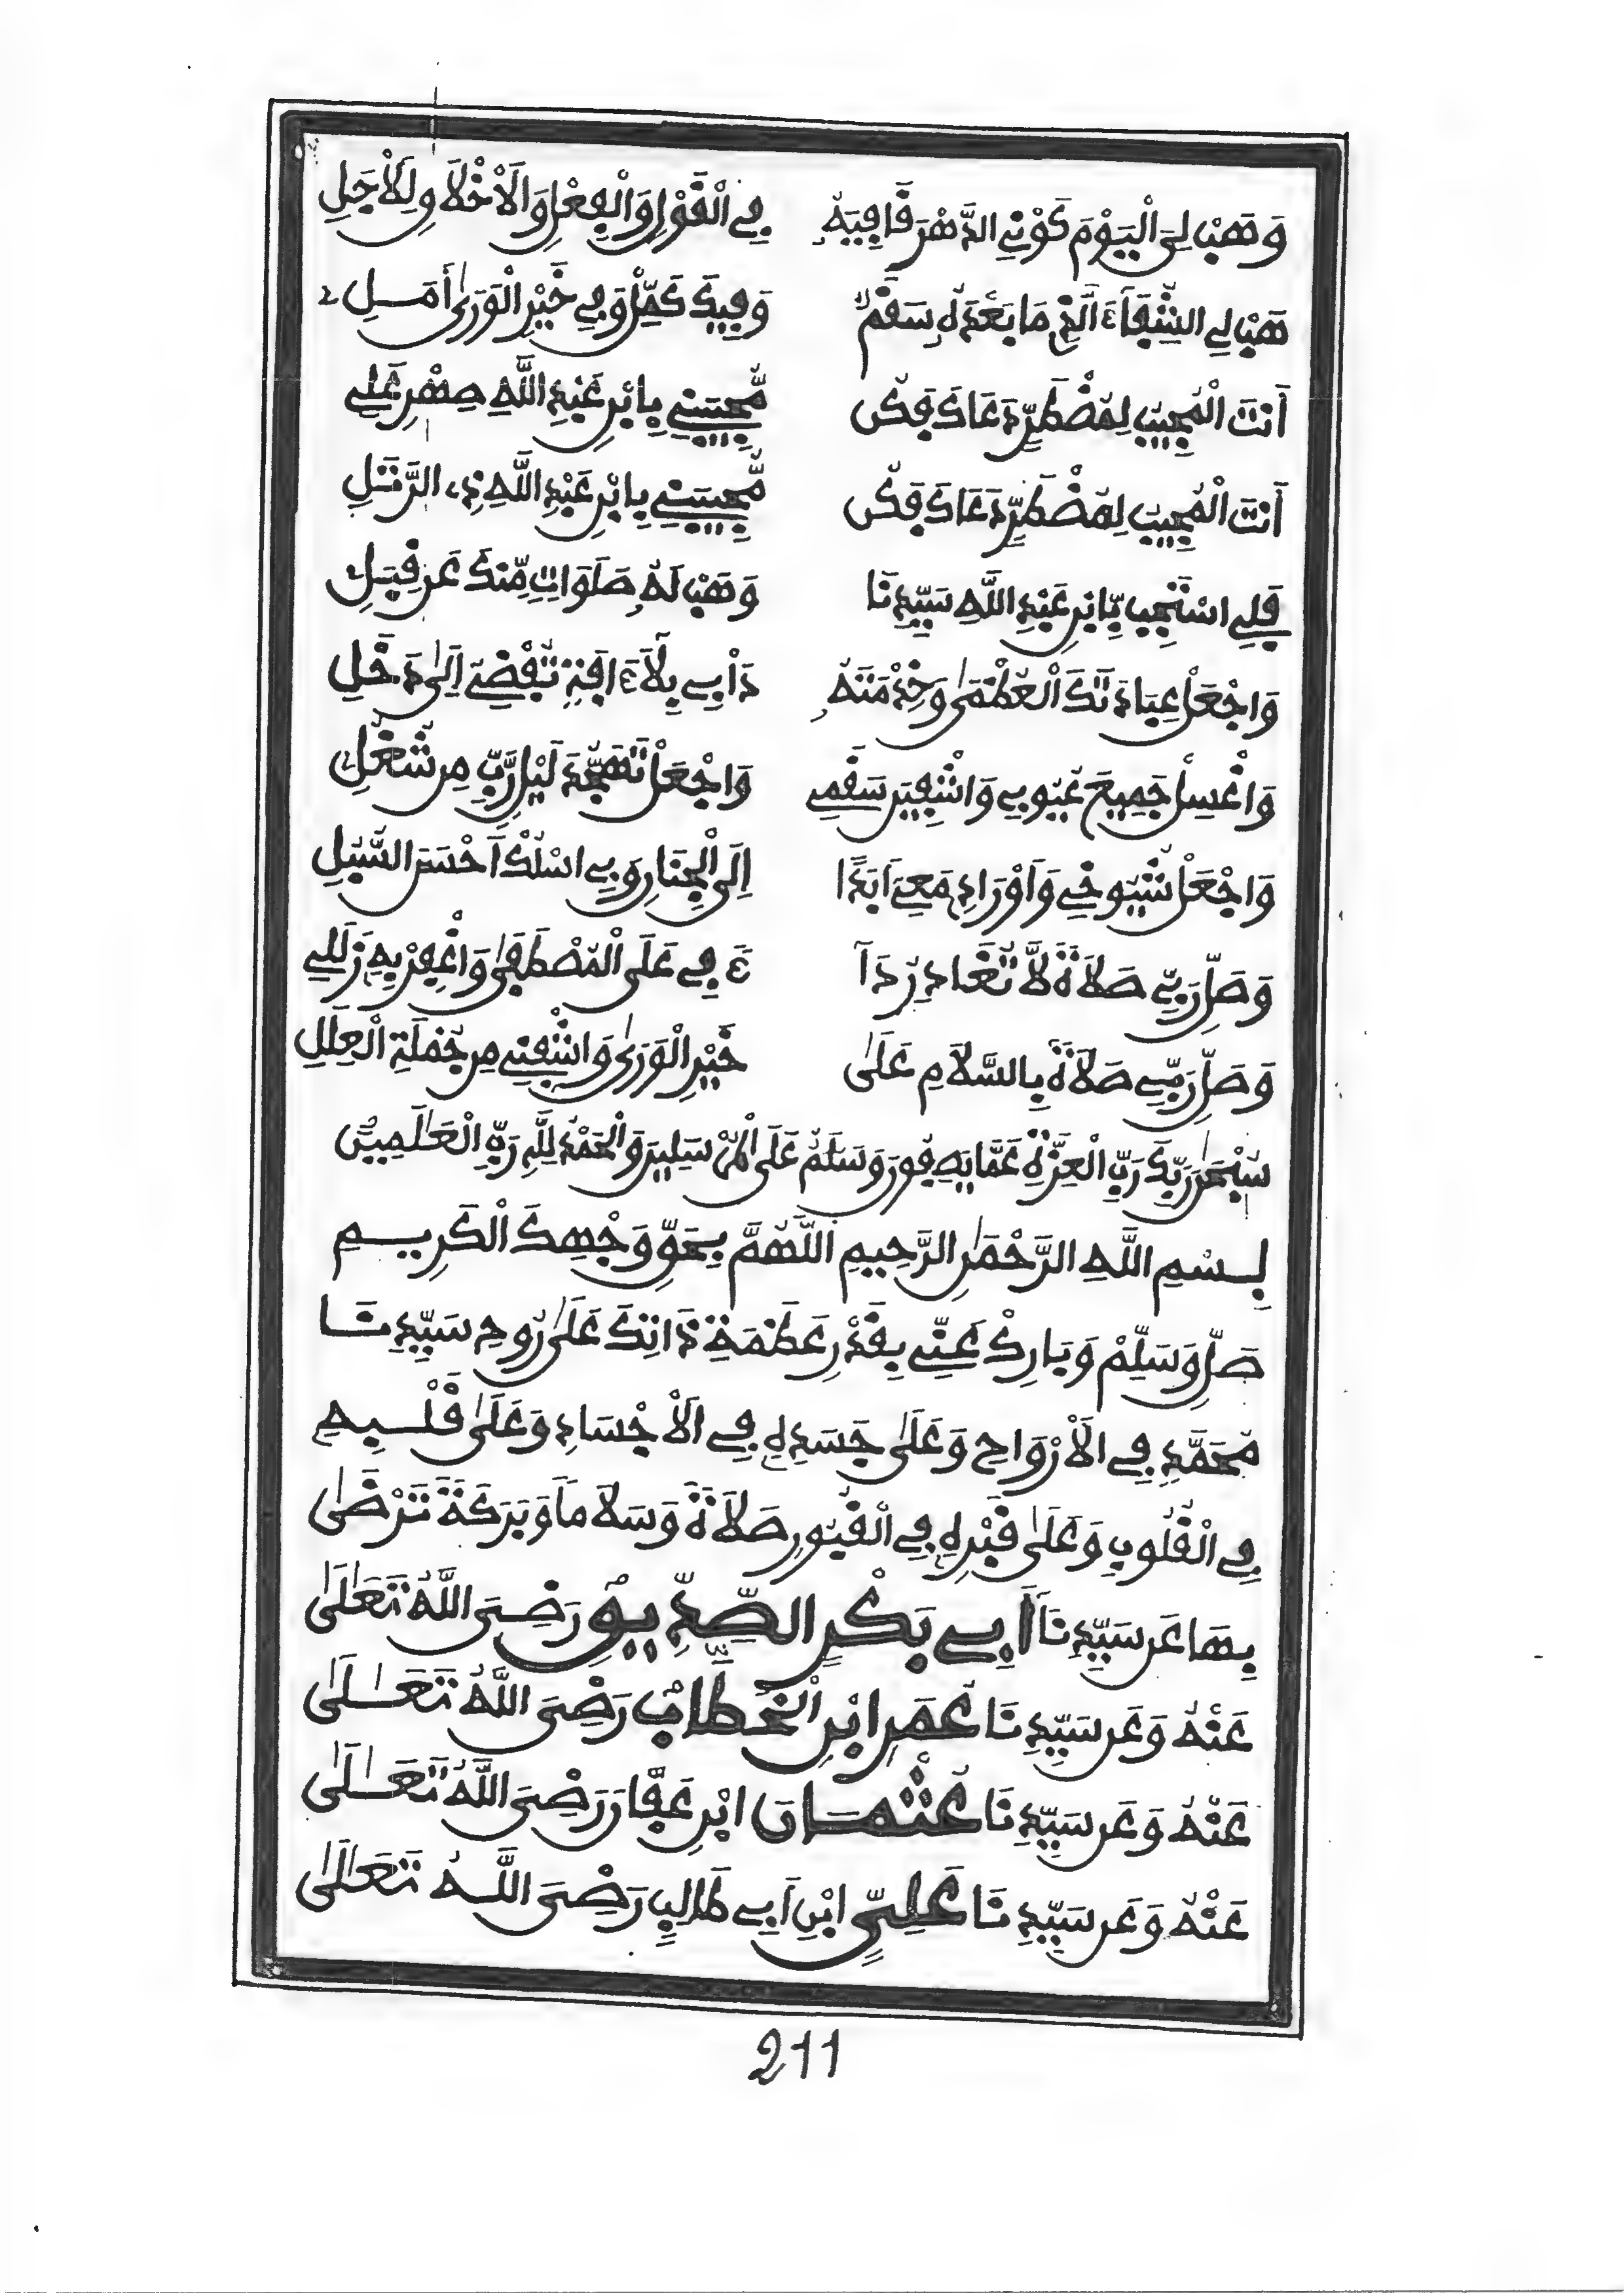 وَهَبْ لِيَ الْيَوْمَ كَوْنِي الدَّهْرَ قَافِيَهُ فِي الْقَوْلِ وَالْفِعْلِ وَالْأَخْلَاقِ وَالْأَجَلِ
هَبْ لِي الشِّفَاءَ الَّذِي مَا بَعْدَهُ سَقَمٌ وَفِيكَ كَمِّلْ وَفِي خَيْرِ الْوَرَىٰ أَمَلِي
أَنْتَ الْمُجِيبُ لِمُضْطَرٍّ دَعَاكَ فَكُنْ مُّجِيبَنِي بِابْنِ عَبْدِ اللَّهِ صِهْرِ عَلِي
أَنْتَ الْمُجِيبُ لِمُضْطَرٍّ دَعَاكَ فَكُنْ مُّجِيبَنِي بِابْنِ عَبْدِ اللَّهِ ذِي الرَّتَلِ
فَلِي اسْتَجِبْ بِابْنِ عَبْدِ اللَّهِ سَيِّدِنَا وَهَبْ لَهُ صَلَوَاتٍ مِّنْكَ عَن قِبَلِ
وَاجْعَلْ عِبَادَتَكَ الْعُظْمَىٰ وَخِدْمَتَهُ دَأْبِي بِلَا ءَافَةٍ تُفْضِي إِلَىٰ دَخَلِ
وَاغْسِلْ جَمِيعَ عُيُوبِي وَاشْفِيَن سَقَمِي وَاجْعَلْ تَهَجُّدَ لَيْلٍ رَبِّ مِن شُغُلِي
وَاجْعَلْ شُيُوخِي وَأَوْرَادِي مَعِي أَبَدًا إِلَى الْجِنَانِ وَبِي اسْلُكْ أَحْسَنَ السُّبُلِ
وَصَلِّ رَبِّي صَلَاةً لَّا تُغَادِرُ دَآ ءً فِي عَلَى الْمُصْطَفَىٰ وَاغْفِرْ بِهِ زَلَلِي
وَصَلِّ رَبِّي صَلَاةً بِالسَّلَامِ عَلَىٰ خَيْرِ الْوَرَىٰ وَاشْفِنِي مِن جُمْلَةِ الْعِلَلِ
سُبْحَٰنَ رَبِّكَ رَبِّ الْعِزَّةِ عَمَّا يَصِفُونَ وَسَلَٰمٌ عَلَى الْمُرْسَلِينَ وَالْحَمْدُ لِلَّهِ رَبِّ الْعَٰلَمِينَ
بِسْمِ اللَّهِ الرَّحْمَٰنِ الرَّحِيمِ اللَّهُمَّ بِحَقِّ وَجْهِكَ الْكَرِيمِ
صَلِّ وَسَلِّمْ وَبَارِكْ عَنِّي بِقَدْرِ عَظَمَةِ ذَاتِكَ عَلَىٰ رُوحِ سَيِّدِنَا
مُحَمَّدٍ فِي الْأَرْوَاحِ وَعَلَىٰ جَسَدِهِ فِي الْأَجْسَادِ وَعَلَىٰ قَلْبِهِ
فِي الْقُلُوبِ وَعَلَىٰ قَبْرِهِ فِي الْقُبُورِ صَلَاةً وَسَلَامًا وَبَرَكَةً تَرْضَىٰ
بِهَا عَن سَيِّدِنَا أَبِي بَكْرٍ الصِّدِّيقِ رَضِيَ اللَّهُ تَعَالَىٰ
عَنْهُ وَعَن سَيِّدِنَا عُمَرَ ابْنِ الْخَطَّابِ رَضِيَ اللَّهُ تَعَالَىٰ
عَنْهُ وَعَن سَيِّدِنَا عُثْمَانَ ابْنِ عَفَّانَ رَضِيَ اللَّهُ تَعَالَىٰ
عَنْهُ وَعَن سَيِّدِنَا عَلِيٍّ ابْنِ أَبِي طَالِبٍ رَضِيَ اللَّهُ تَعَالَىٰ
211